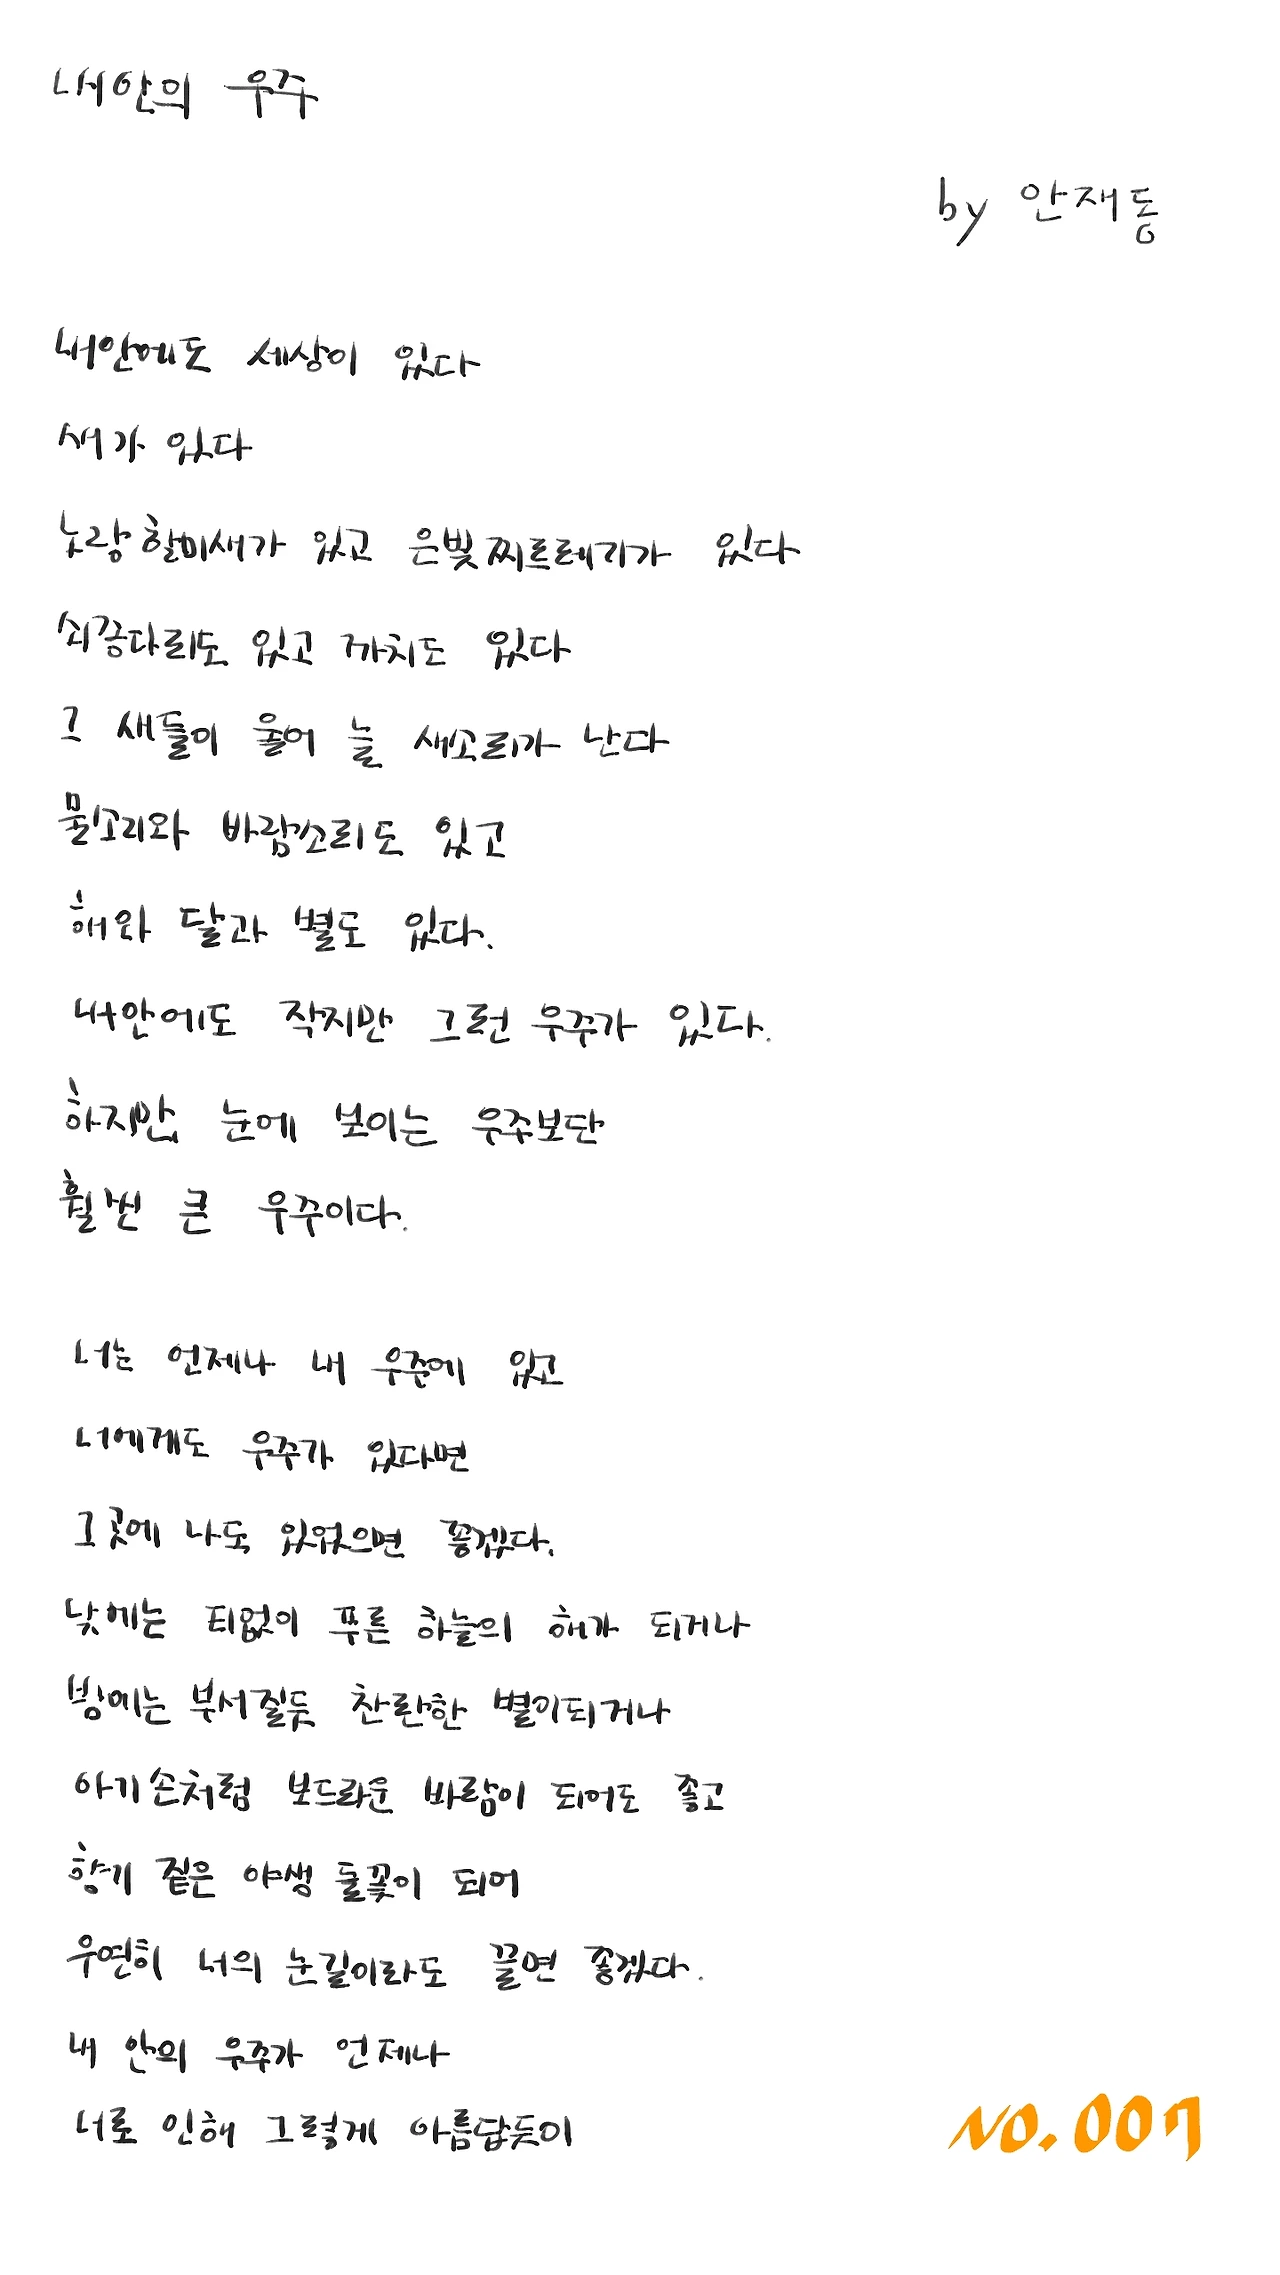 내안의 우주
by 안재동
내안에도 세상이 있다
새가 있다
노랑할미새가 있고 은빛찌르레기가 있다
쇠꽁다리도 있고 까치도 있다
그 새들이 울어 늘 새소리가 난다
물소리와 바람소리도 있고
해와 달과 별도 있다.
내안에도 작지만 그런 우주가 있다.
하지만, 눈에 보이는 우주보단
훨씬 큰 우주이다.
너는 언제나 내 우주에 있고
너에게도 우주가 있다면
그곳에 나도 있었으면 좋겠다.
낮에는 티없이 푸른 하늘의 해가 되거나
밤에는 부서질듯 찬란한 별이되거나
아기손처럼 보드라운 바람이 되어도 좋고
향기 짙은 야생 들꽃이 되어
우연히 너의 눈길이라도 끌면 좋겠다.
내 안의 우주가 언제나
너로 인해 그렇게 아름답듯이
NO. 007